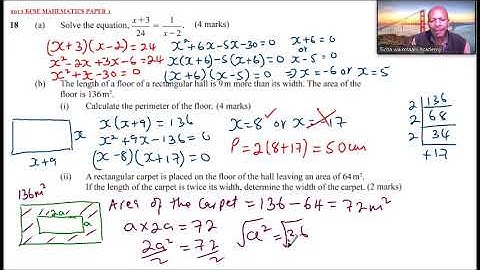 2013 KCSE MATHEMATICS PAPER 1
18 (a) Solve the equation, x+3/24 = 1/x−2. (4 marks)
(x+3)(x−2)=24
x²−2x+3x−6=24
x²+x−30=0
x²+6x−5x−30=0
x(x+6)−5(x+6)=0
(x+6)(x−5)=0
x+6=0
or
x−5=0
⇒x=−6 or x=5
(b) The length of a floor of a rectangular hall is 9 m more than its width. The area of the
floor is 136m².
(i) Calculate the perimeter of the floor. (4 marks)
x
x+9
x(x+9)=136
x²+9x−136=0
(x−8)(x+17)=0
x=8 or x=−17
P=2(8+17)=50cm
2 136
2 68
2 34
+17
(ii) A rectangular carpet is placed on the floor of the hall leaving an area of 64m².
If the length of the carpet is twice its width, determine the width of the carpet. (2 marks)
136m²
2a
a
Area of the carpet = 136−64=72m²
a×2a=72
2a²/2=72/2
√a²=√36